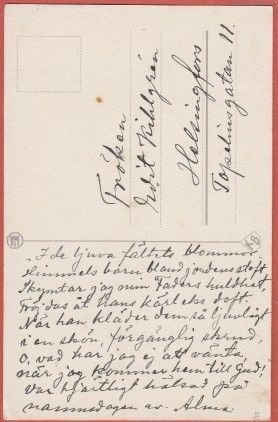 Fröken
Edit Kihlgrén
Helsingfors
Topeliusgatan 11.
"I de ljuva fältets blommor
Himmels barn bland jordens stoft
Skymtar jag min Faders huldhet,
Fröjdas åt hans kärleks doft.
När han kläder dem så ljuvligt
i en skön, förgänglig skrud,
O, vad har jag ej att vänta,
när jag kommer hem till Gud!"
Var hjärtligt hälsad på
namnsdagen av. Alma